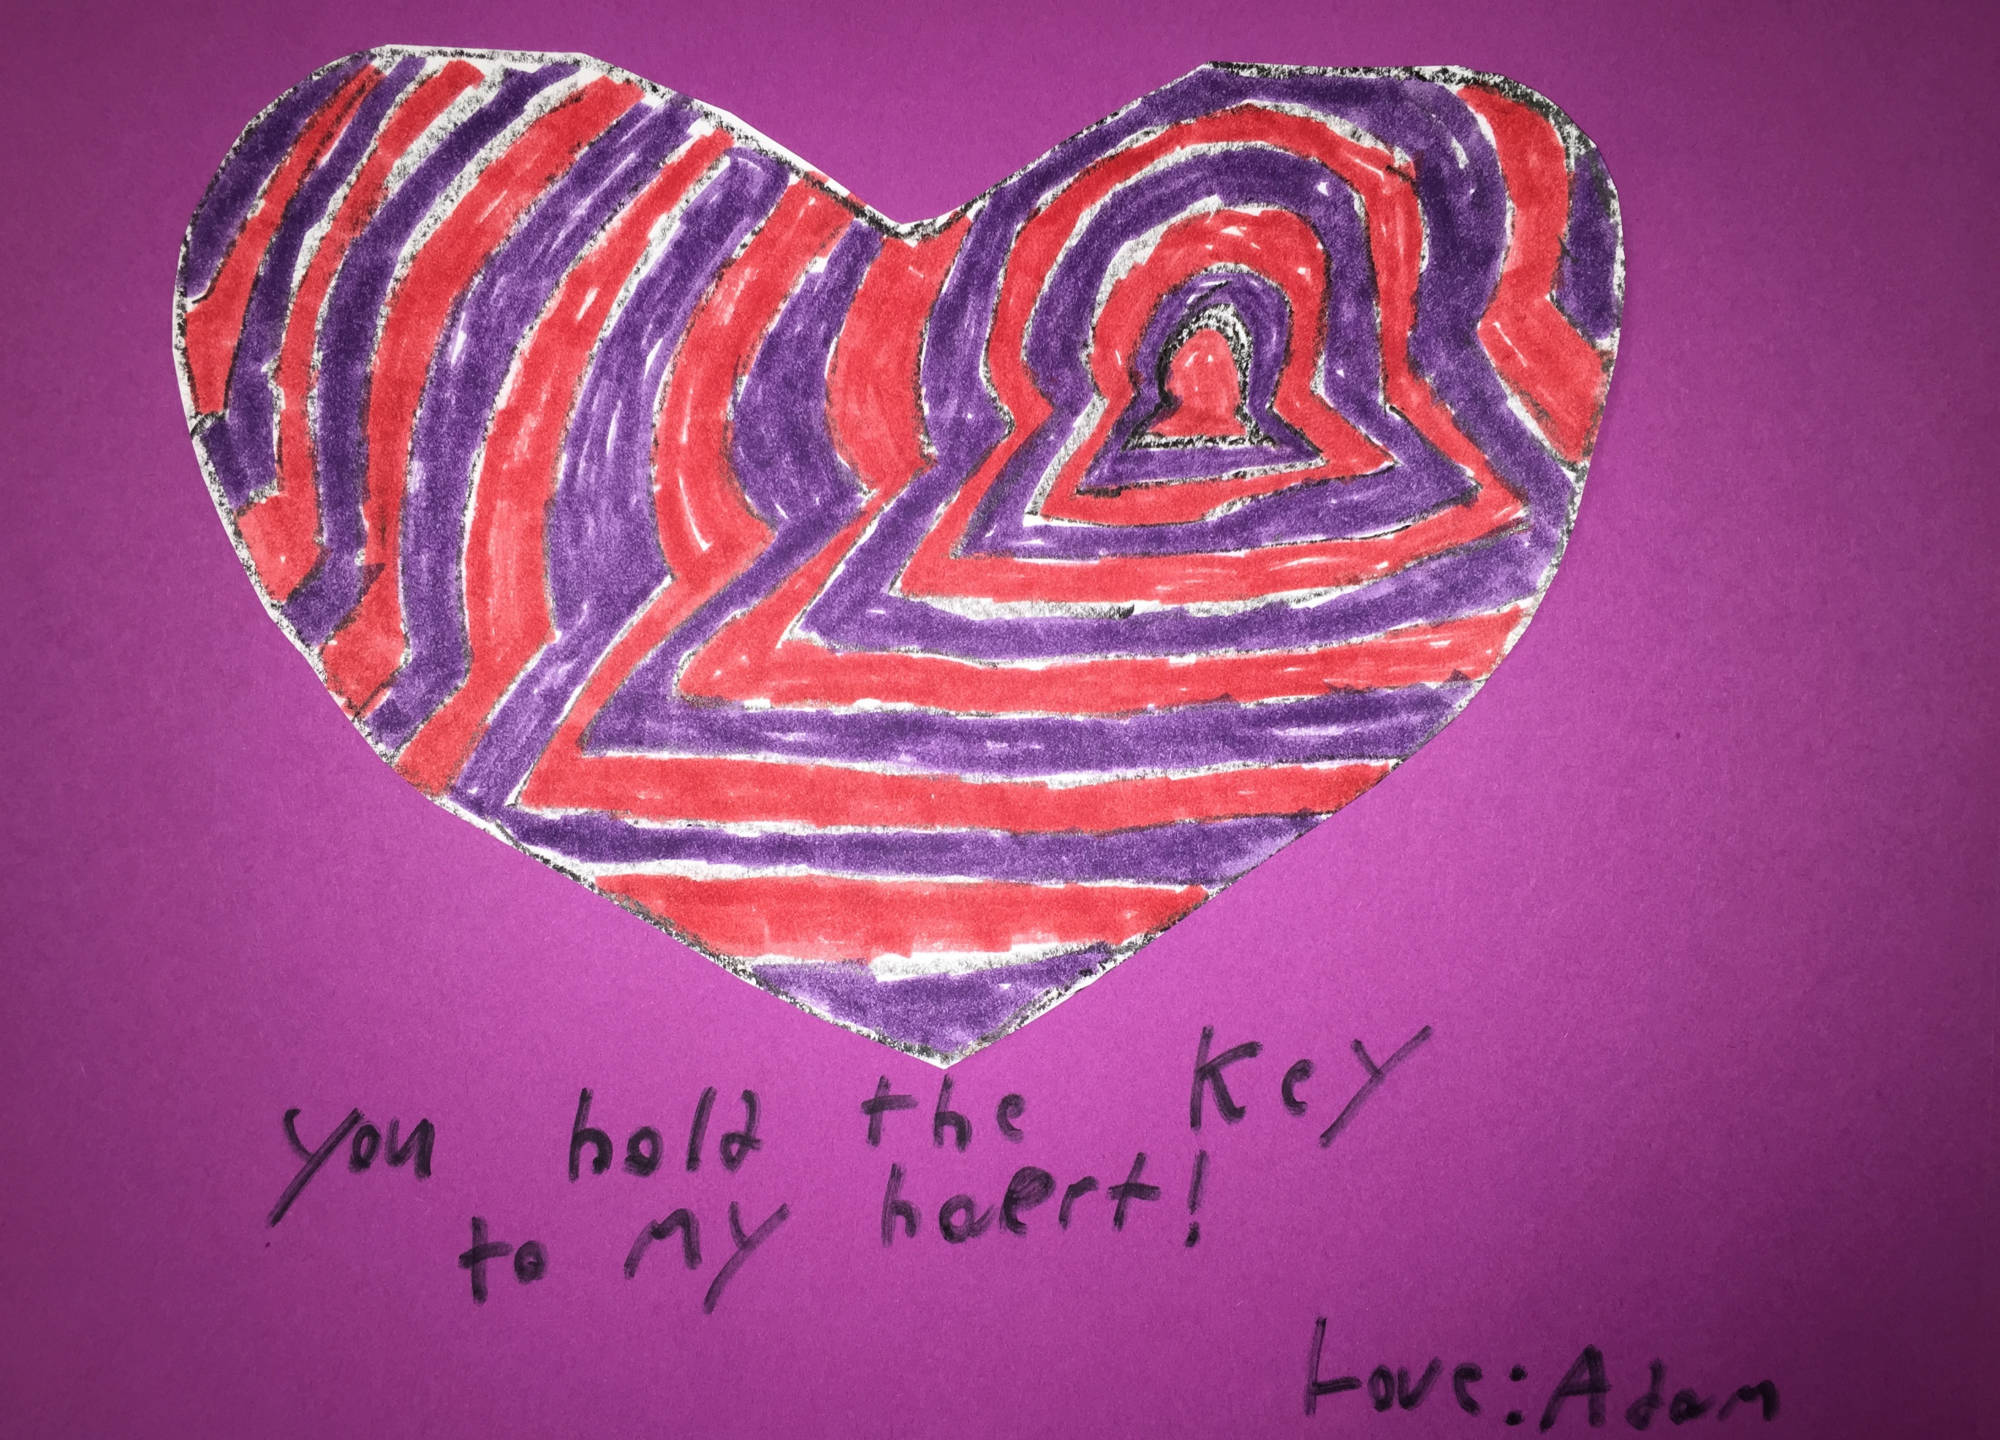 you hold the Key
to my haert!
Love: Adam